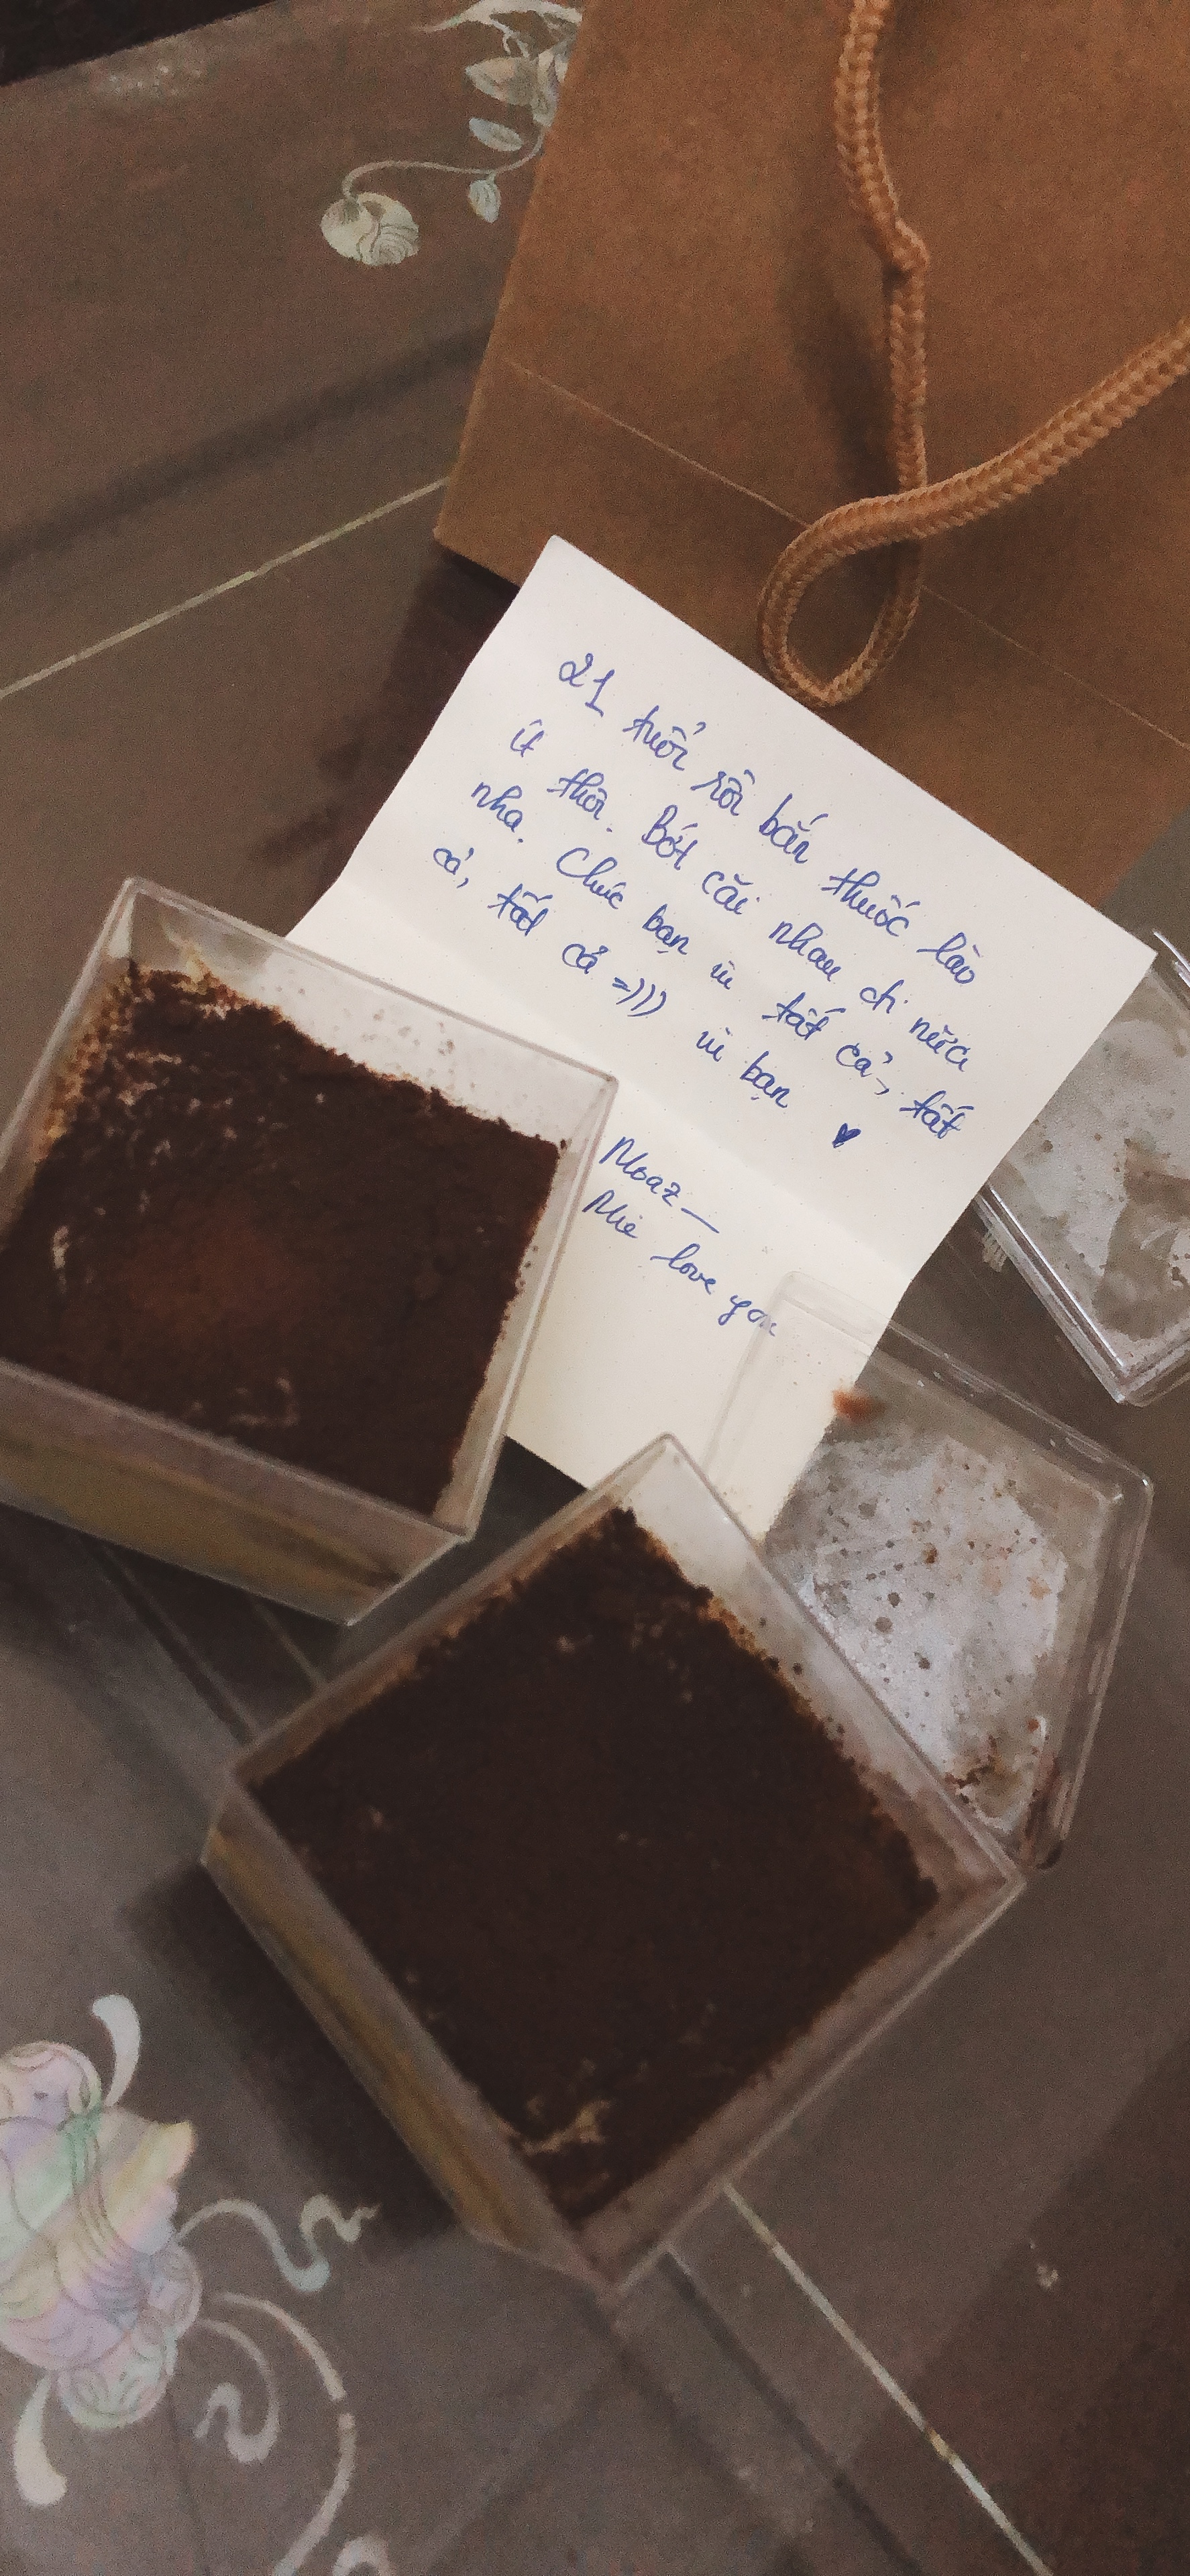 21 tuổi rồi bắn thuốc lào
ít thôi. Bớt cãi nhau đi nữa
nha. Chúc bạn vì tất cả, tất
cả, tất cả =))) vì bạn ♥
Moaz—
Mie love you